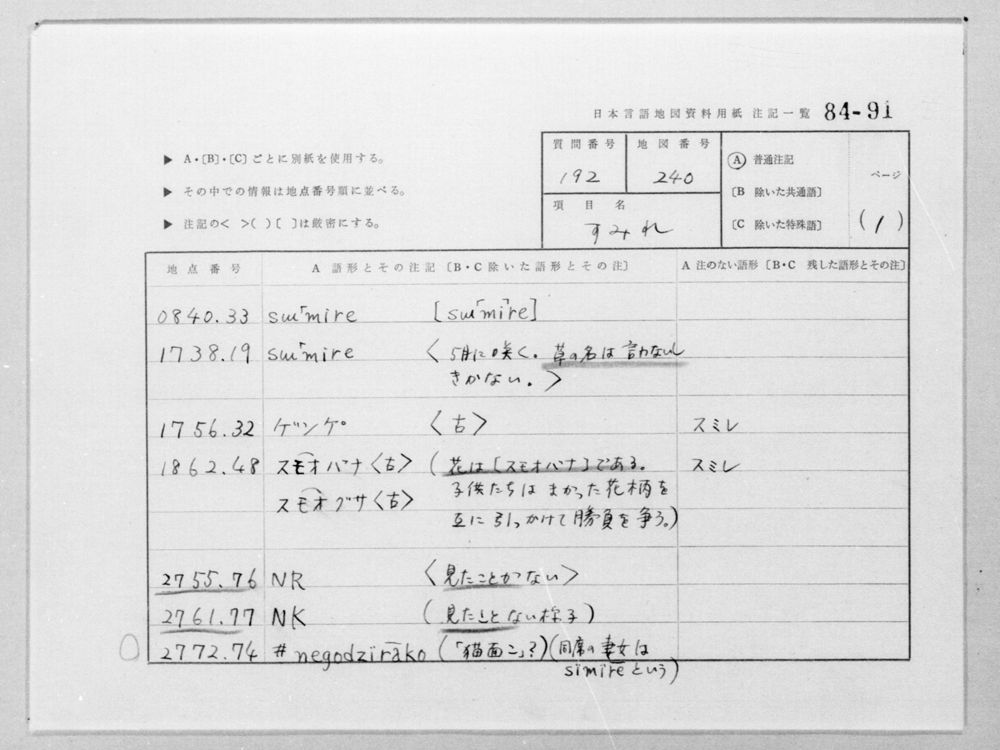 日本言語地図資料用紙 注記一覧 84-91
▶ A・[B]・[C]ごとに別紙を使用する。
▶ その中での情報は地点番号順に並べる。
▶ 注記の< >( )[ ]は厳密にする。
質問番号 地図番号
192 240
項目名
すみれ
Ⓐ 普通注記
[B 除いた共通語]
[C 除いた特殊語]
ページ
(1)
地点番号 A 語形とその注記〔B・C除いた語形とその注〕 A 注のない語形〔B・C 残した語形とその注〕
0840.33 sɯ「mire [sɯ「m」ire]
1738.19 sɯ「mire 〈5月に咲く。草の名は言わないし
きかない。〉
1756.32 ゲンゲ 〈古〉 スミレ
1862.48 スモオバナ〈古〉 (花は[スモオバナ]である。 スミレ
子供たちは まがった花柄を
スモオグサ〈古〉
互に引っかけて勝負を争う。)
2755.76 NR 〈見たことがない〉
2761.77 NK (見たことない様子)
2772.74 # negodzirāko (「猫面こ」?)(同席の妻女は
simireという)